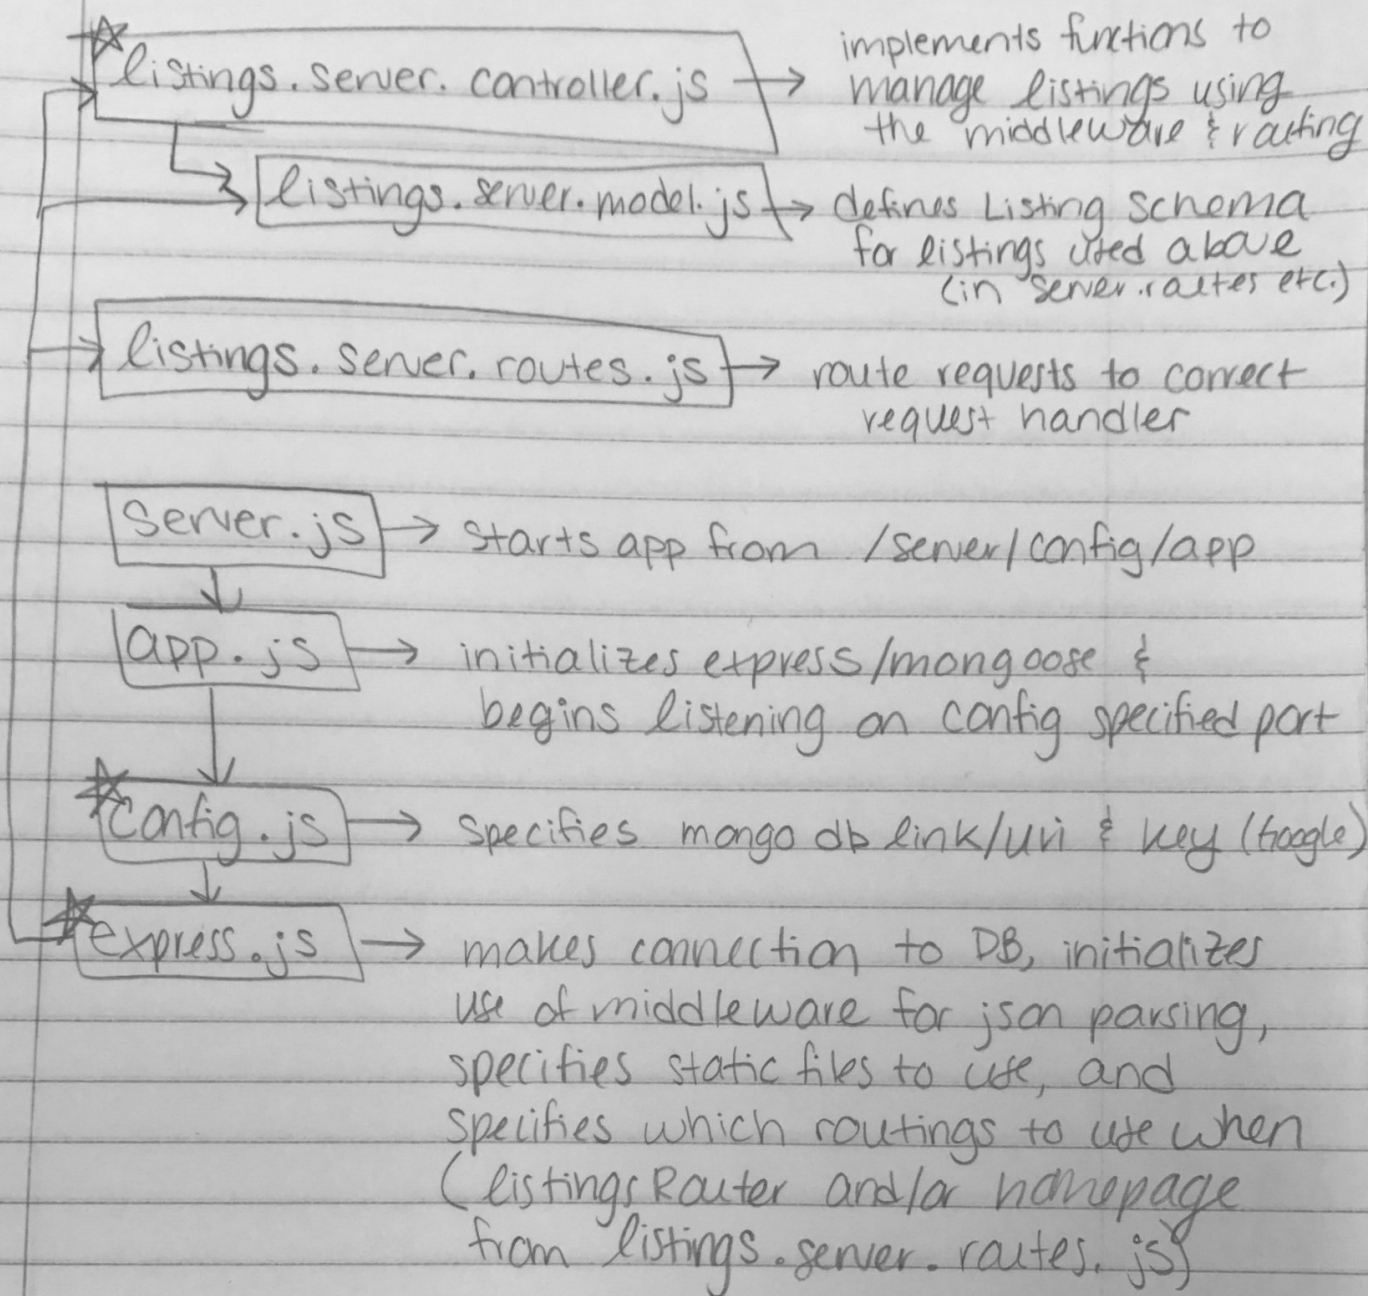 listings.server.controller.js → implements functions to
manage listings using
the middleware & routing
listings.server.model.js → defines Listing schema
for listings used above
(in server.routes etc.)
listings.server.routes.js → route requests to correct
request handler
server.js → starts app from /server/config/app
app.js → initializes express/mongoose &
begins listening on config specified port
config.js → specifies mongo db link/uri & key (Google)
express.js → makes connection to DB, initializes
use of middleware for json parsing,
specifies static files to use, and
specifies which routings to use when
(listingsRouter and/or homepage
from listings.server.routes.js)